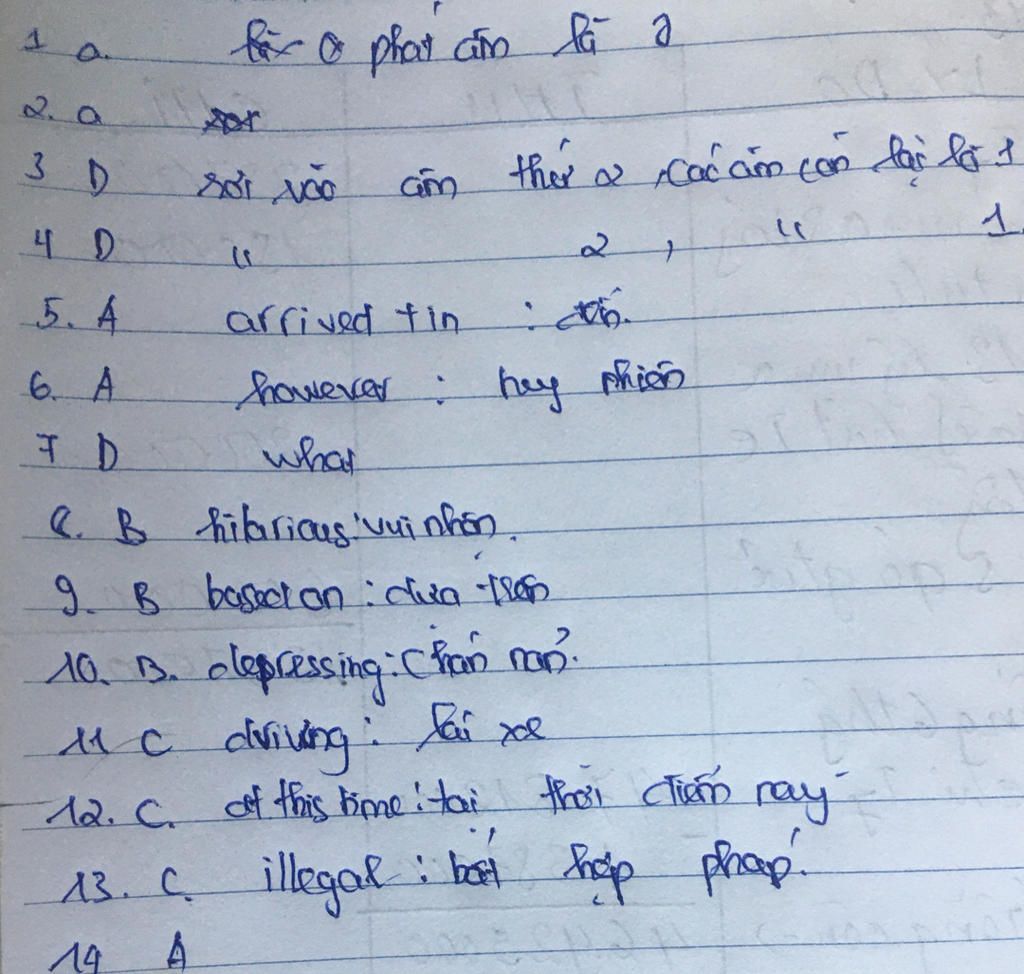 1 a. là a phát âm là ə
2. a
3 D rơi vào âm thứ 2, các âm còn lại là 1
4 D " 2, " 1
5. A arrived + in : đến.
6. A however : tuy nhiên
7 D what
8. B hilarious: vui nhộn.
9. B based on : dựa trên
10. B. depressing: chán nản.
11 C driving : lái xe
12. C. at this time : tại thời điểm này
13. C. illegal : bất hợp pháp.
14 A